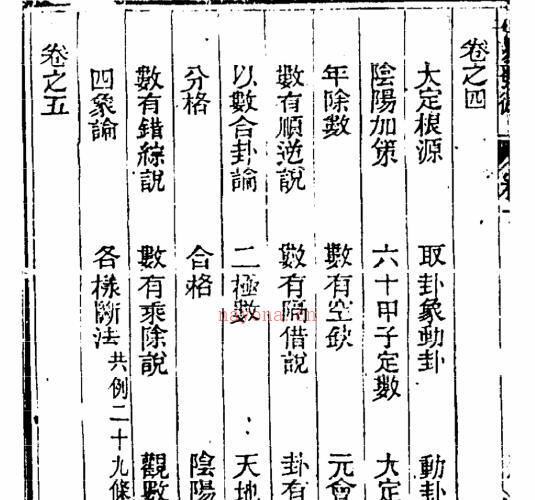 卷之四
大定根源 取卦象動卦 動卦
陰陽加策 六十甲子定數 大定
年除數 數有空缺 元會
數有順逆說 數有隔借說 卦有
以數合卦論 二極數 天地
分格 合格 陰陽
數有錯綜說 數有乘除說 觀數
四象論 各樣斷法 共例二十九條
卷之五